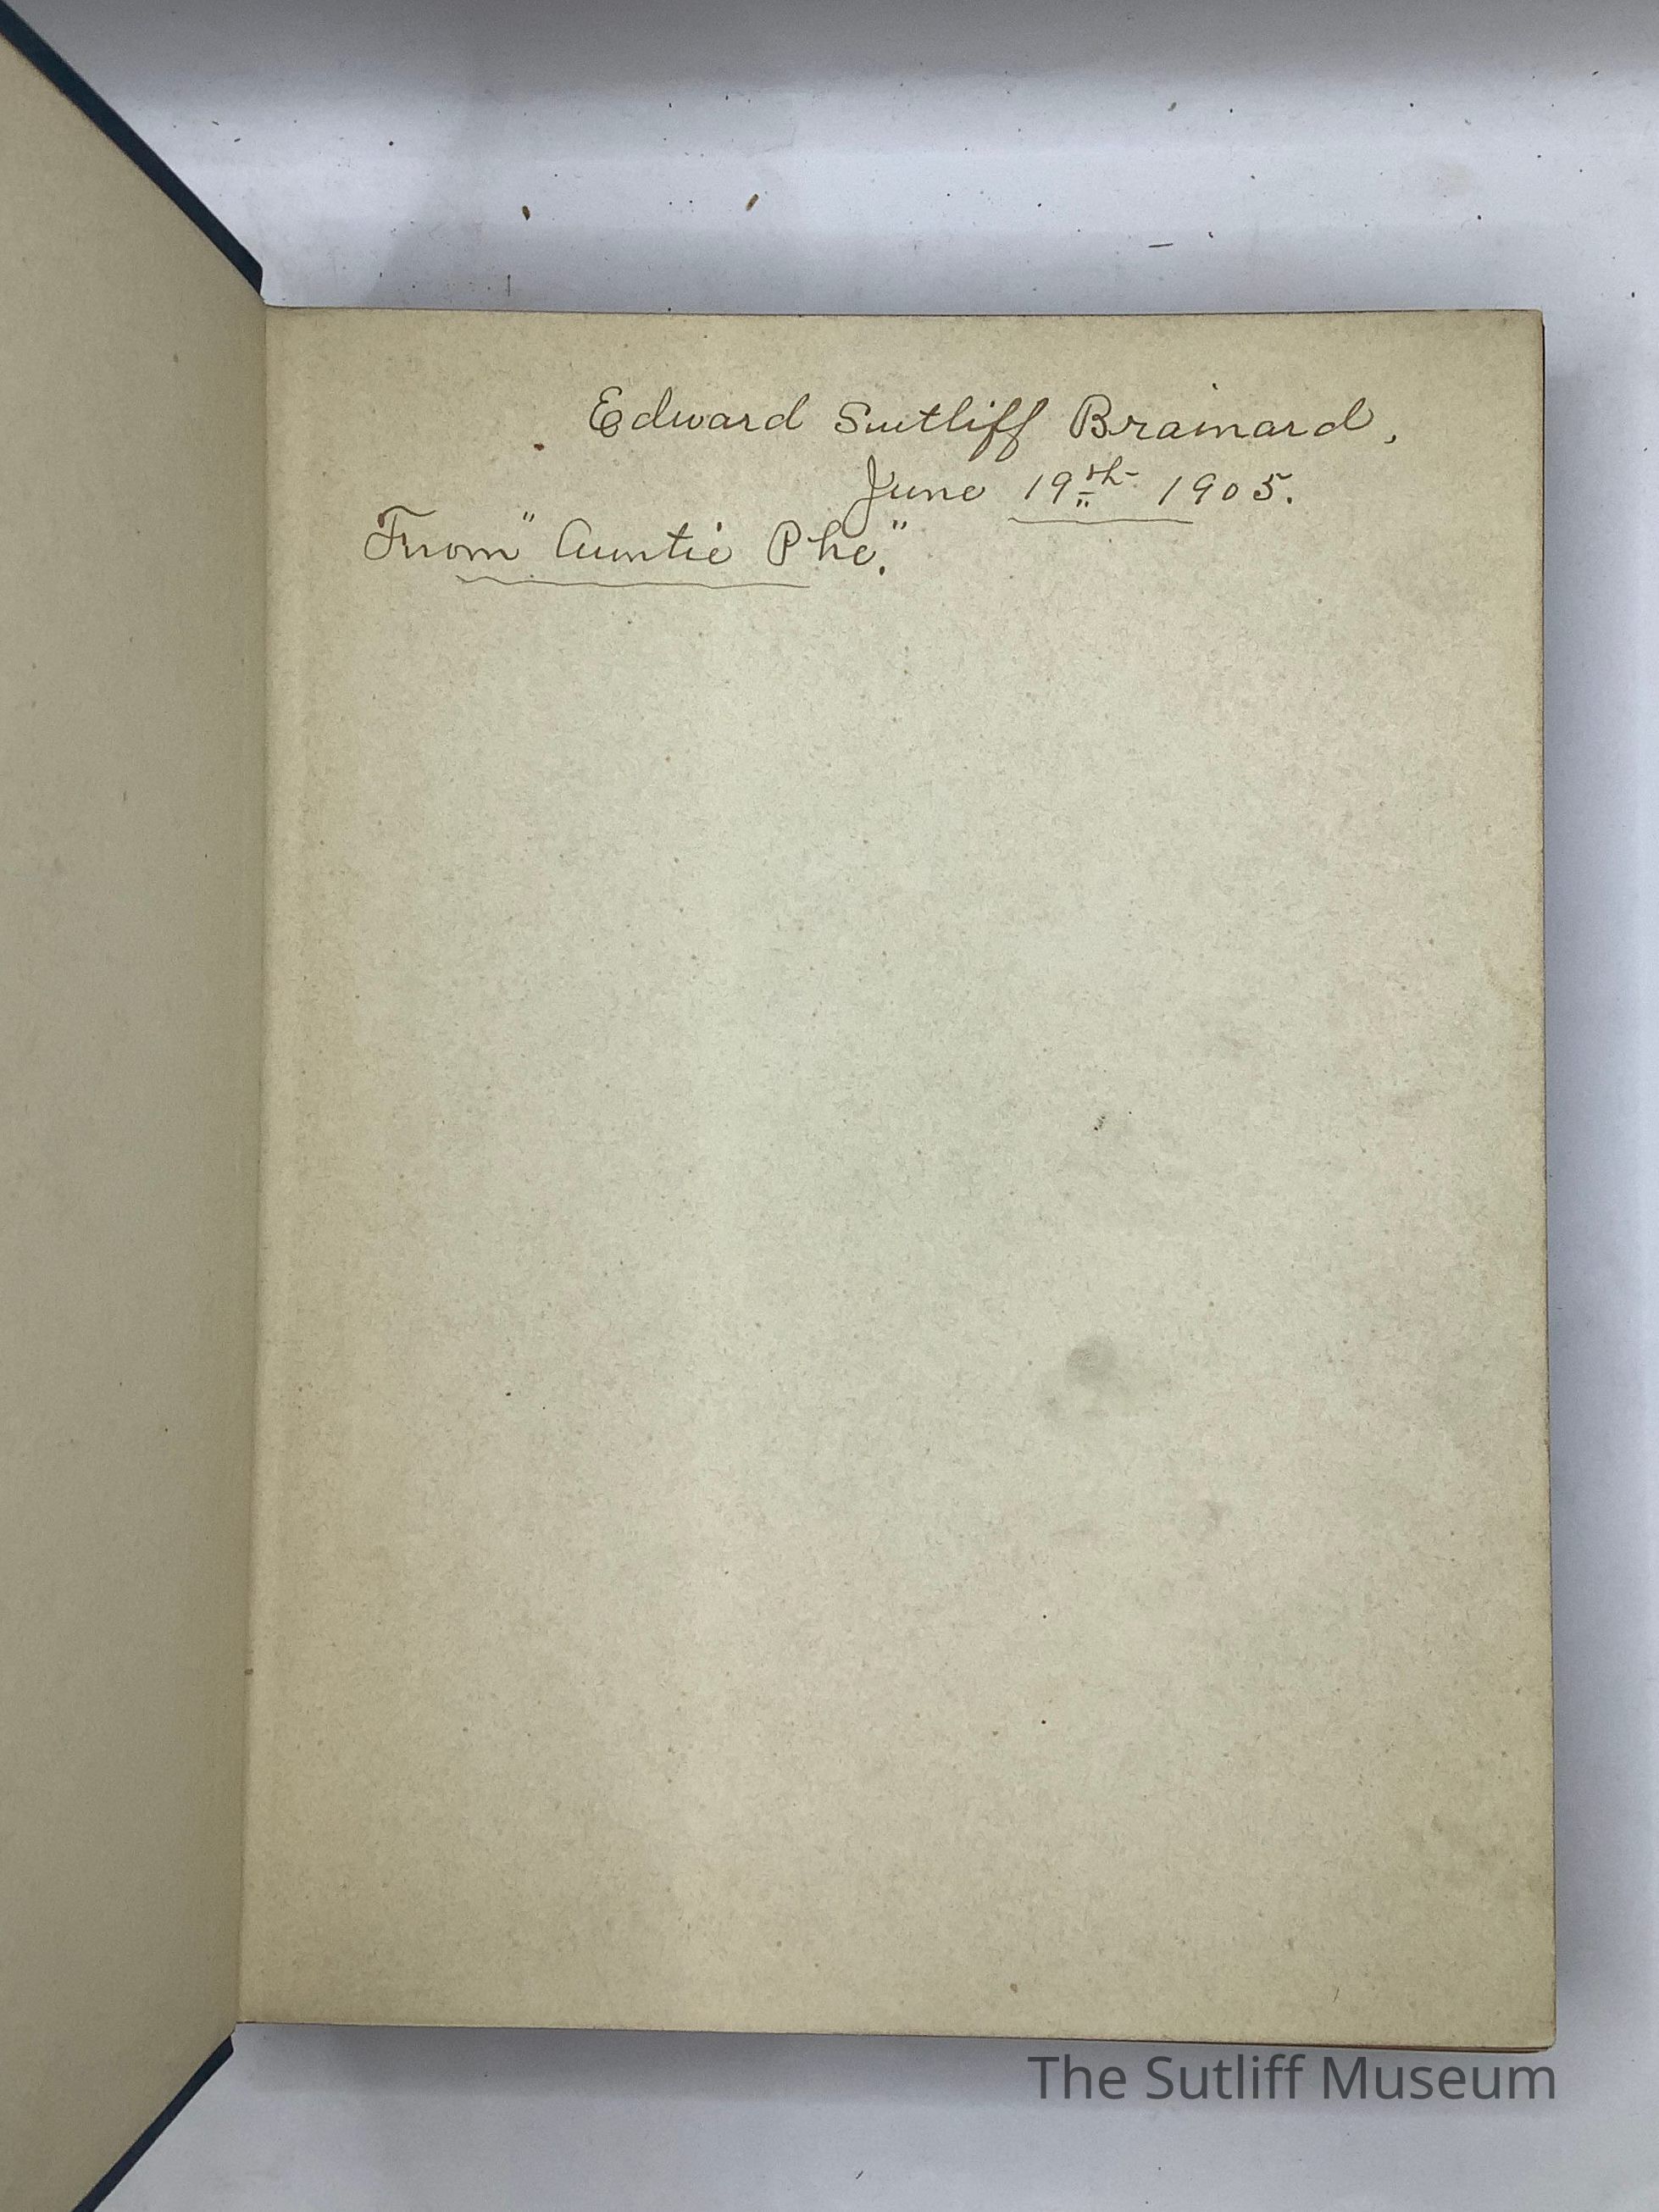 Edward Sutliff Brainard,
June 19th 1905.
From "Auntie Phe."
The Sutliff Museum